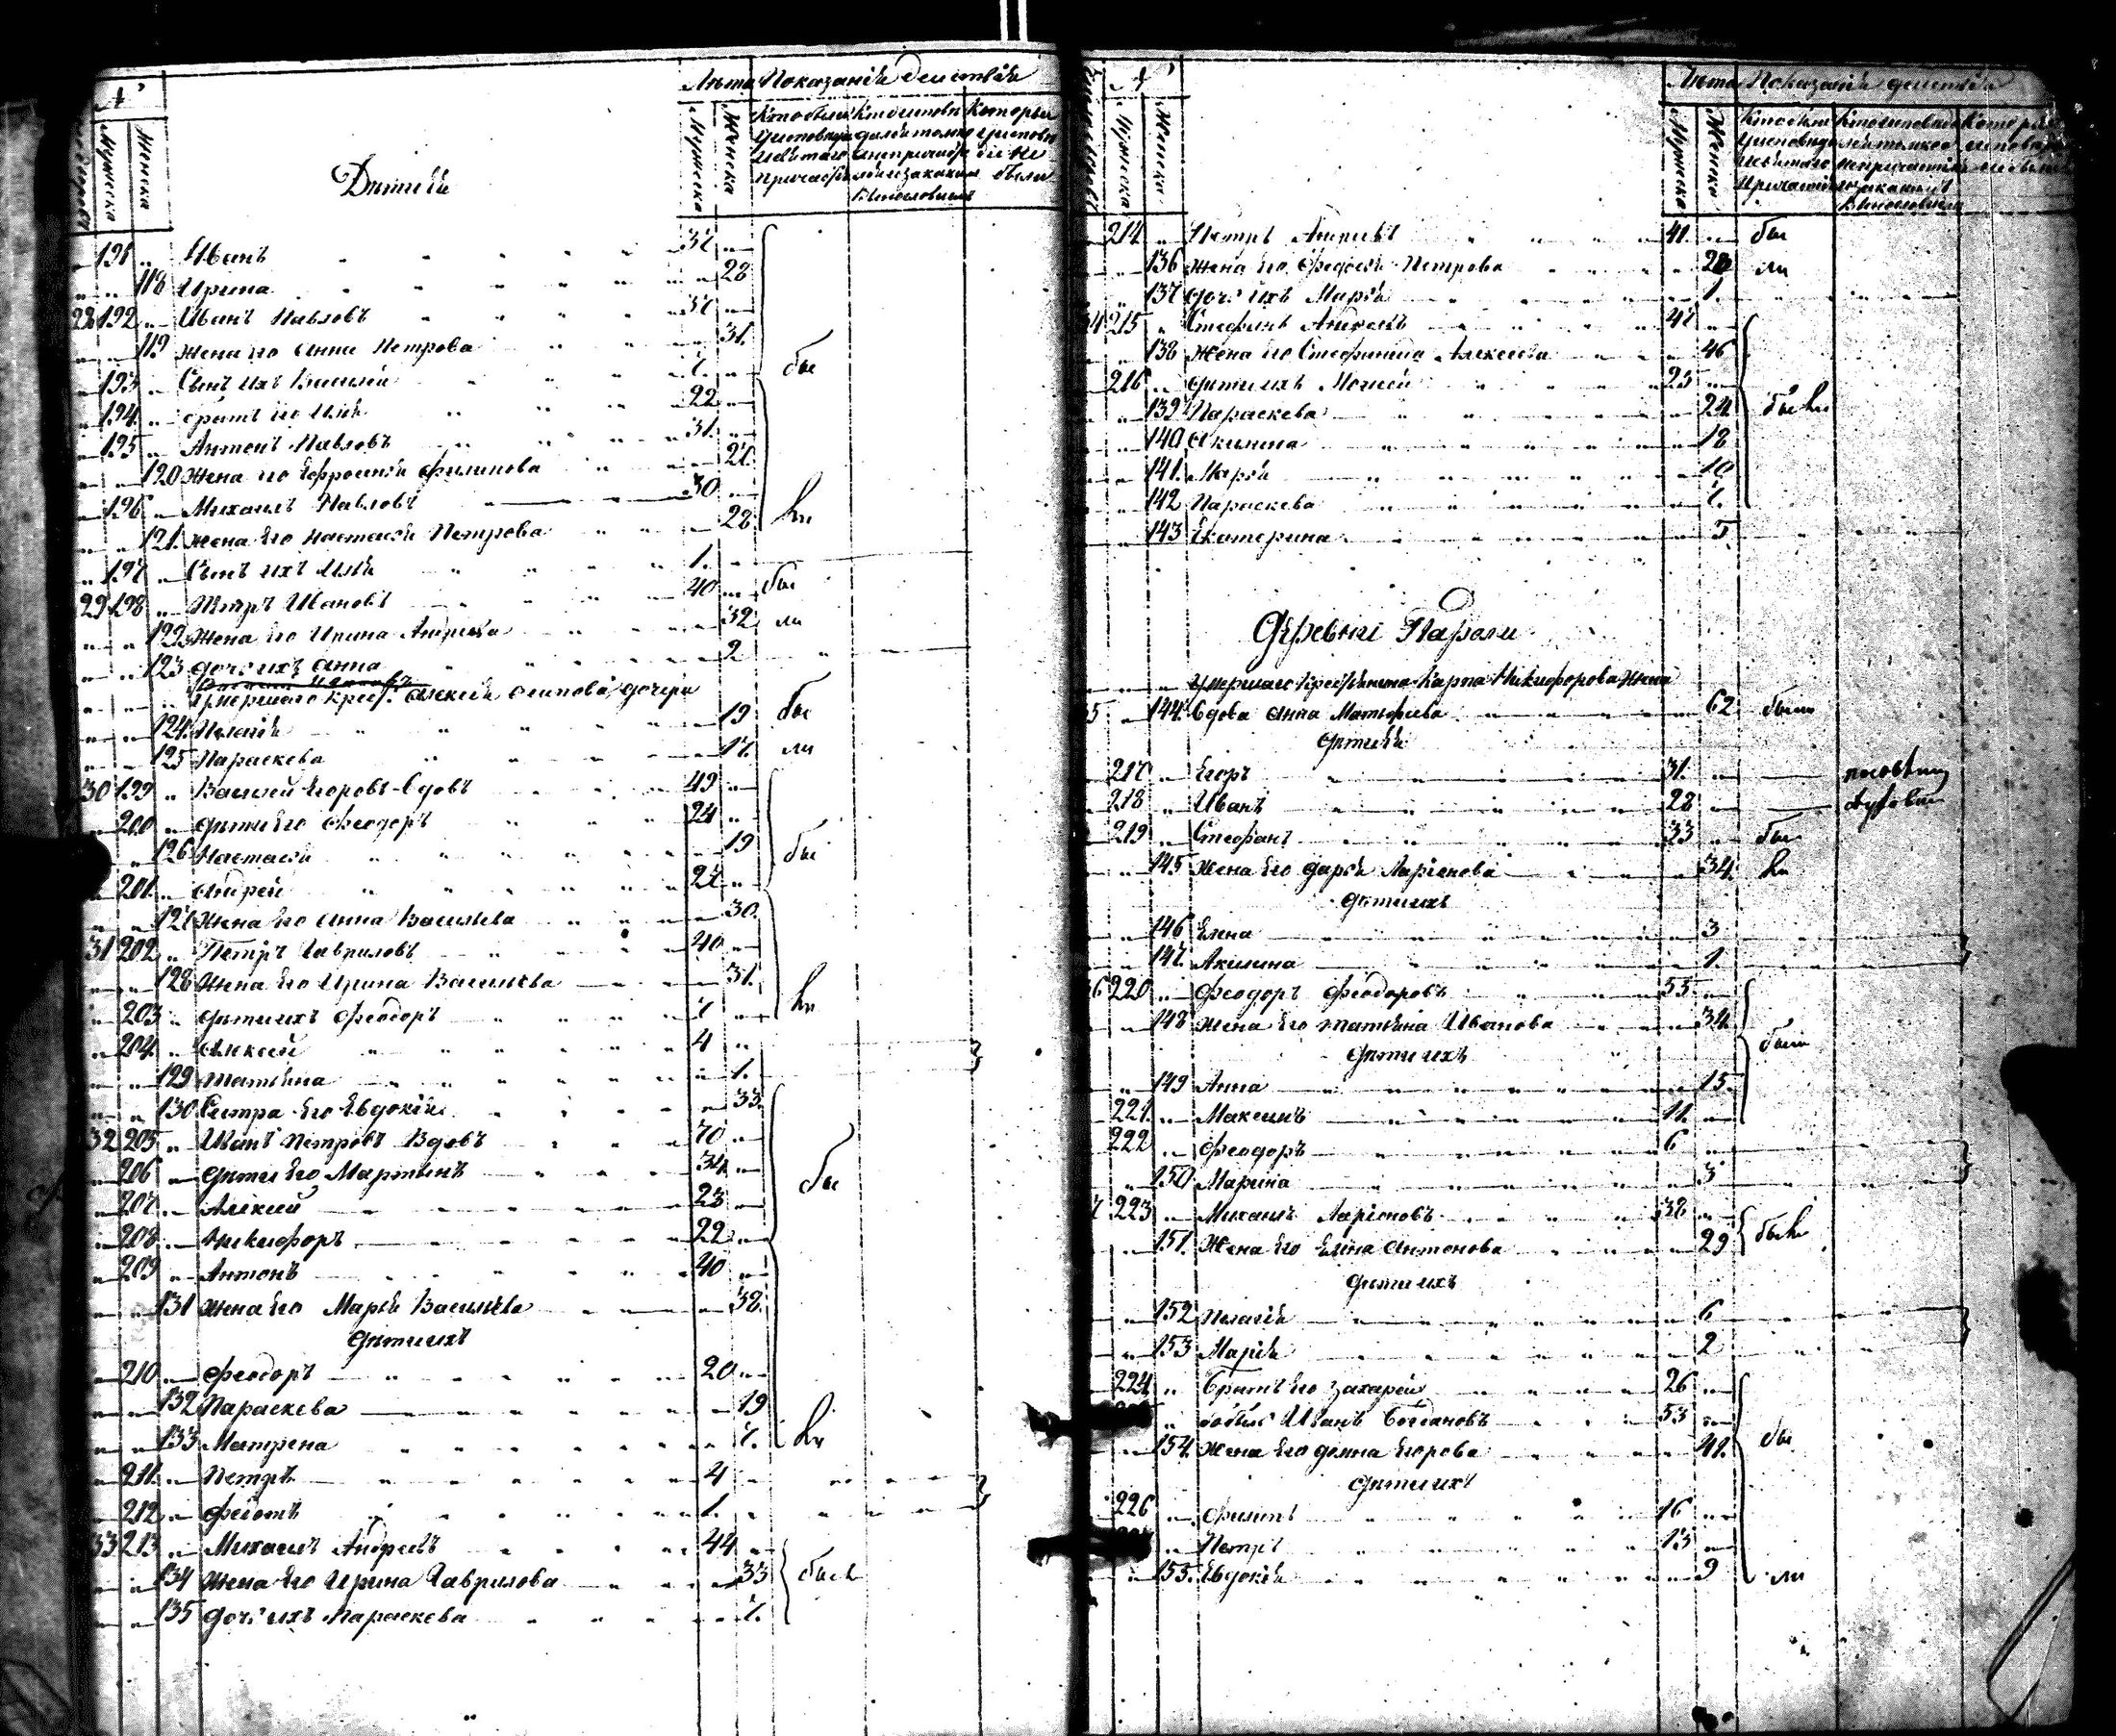 №
Мужеска
Женска
Дѣти ея
Лѣта
Мужеска
Женска
Показаніе действія
191 Иванъ 37
118 Ирина 28
28 192 Иванъ Павловъ 37
119 Жена его Анна Петрова 31
193 Сынъ ихъ Василій 7
194 братъ его Илія 22
195 Антонъ Павловъ 31
120 Жена его Ефросинія Филипова 27
196 Михаилъ Павловъ 30
121 жена его Настасія Петрова 28
197 Сынъ ихъ Илія 1
29 198 Петръ Ивановъ 40
122 Жена его Ирина Андреева 32
123 дочь ихъ Анна 2
умершаго крест. Алексія Осипова дочери
124 Пелагія 19
125 Параскева 17
30 199 Василей Егоровъ вдовъ 49
200 дѣти его Феодоръ 24
126 Настасія 19
201 Андрей 27
127 Жена его Анна Васильева 30
31 202 Петръ Гавриловъ 40
128 Жена его Ирина Васильева 31
203 дѣти ихъ Феодоръ 7
204 Алексей 4
129 Татьяна 1
130 Сестра его Евдокія 33
32 205 Иванъ Петровъ вдовъ 70
206 дѣти его Мартынъ 34
207 Алексей 23
208 Никифоръ 22
209 Антонъ 40
131 Жена его Марья Васильева 38
дѣти ихъ
210 Феодоръ 20
132 Параскева 19
133 Матрена 7
211 Петръ 4
212 Федотъ 1
33 213 Михаилъ Андреевъ 44
134 Жена его Ирина Гаврилова 33
135 дочь ихъ Параскева 7
№
Мужеска
Женска
Лѣта
Мужеска
Женска
Показаніе действія
214 Петръ Андреевъ 41 бы
136 Жена его Федосія Петрова 28 ли
137 дочь ихъ Марія 1
34 215 Стефанъ Андреевъ 47
138 Жена его Стефанида Алексеева 46
216 дѣти ихъ Моисей 25
139 Параскева 24 были
140 Акилина 18
141 Марія 10
142 Параскева 7
143 Екатерина 5
Деревни Пароли
умершаго крестьянина Карпа Никифорова Жена
35 144 вдова Анна Матвеева 62 была
дѣти ея
217 Егоръ 31
218 Иванъ 28
219 Стефанъ 33 бы
145 Жена его Дарья Ларіонова 34 ли
дѣти ихъ
146 Елена 3
147 Акилина 1
36 220 Феодоръ Феодоровъ 55
148 жена его Татьяна Иванова 34
дѣти ихъ были
149 Анна 15
221 Максимъ 11
222 Феодоръ 6
150 Марина 3
37 223 Михаилъ Ларіоновъ 38
151 Жена его Елена Антонова 29 были
дѣти ихъ
152 Пелагія 6
153 Марія 2
224 Братъ его Захарей 26
бобыль Иванъ Богдановъ 53
154 Жена его Домна Егорова 41 бы
дѣти ихъ
226 Филипъ 16
Петръ 13
155 Евдокія 9 ли